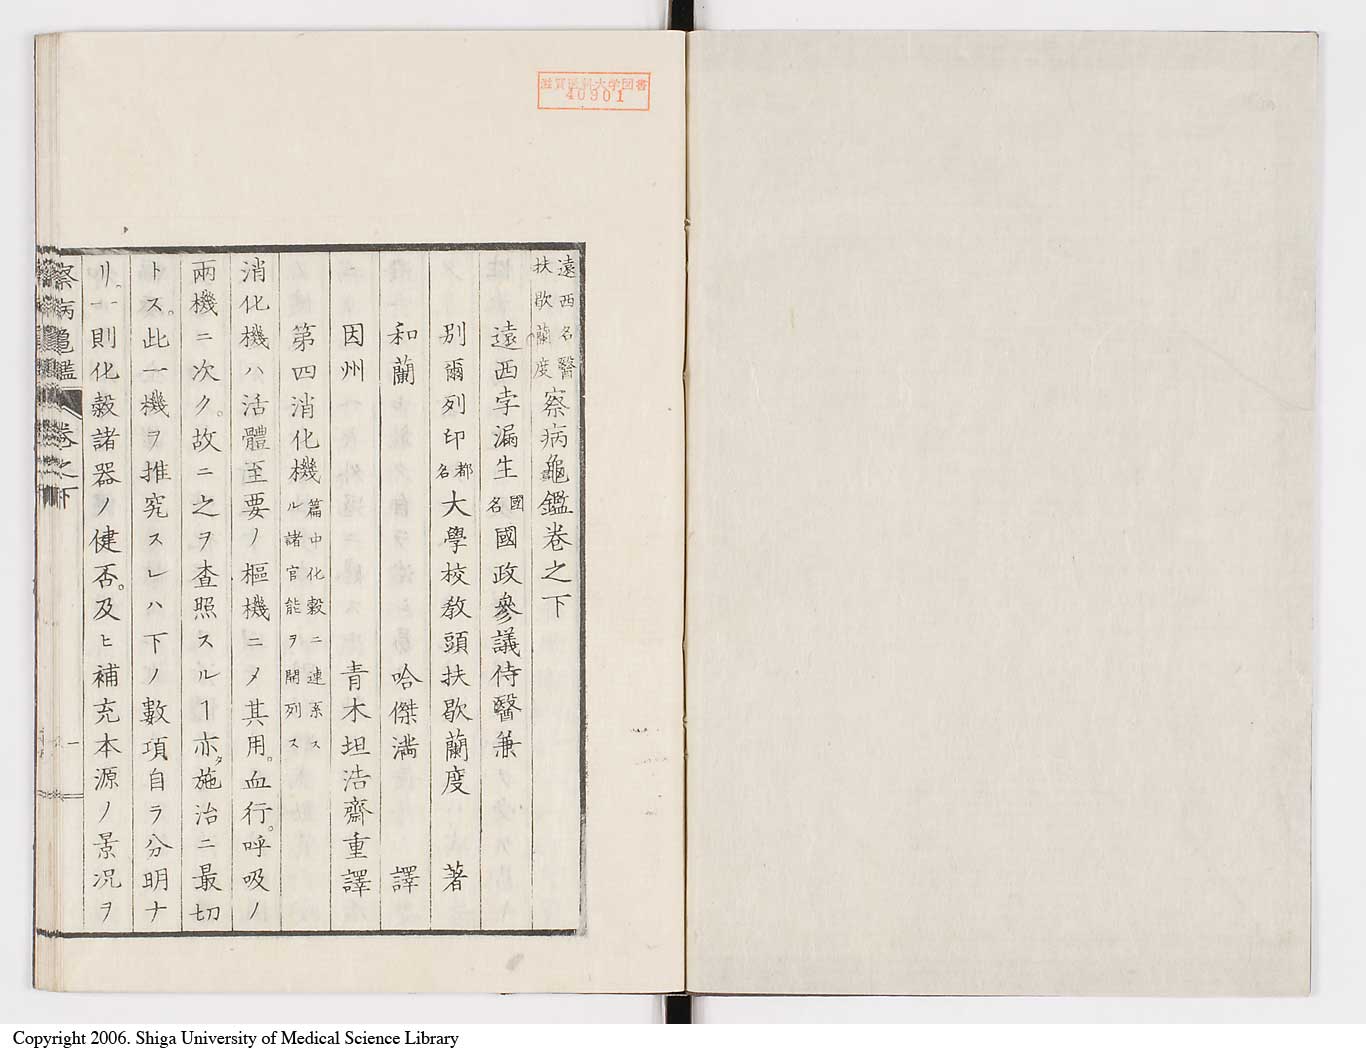 滋賀医科大学図書
40901
遠西名醫扶歇蘭度察病龜鑑卷之下
遠西孛漏生國名國政參議侍醫兼
別爾列印都名大學校教頭扶歇蘭度 著
和蘭 哈傑満 譯
因州 青木坦浩齋重譯
第四消化機篇中化穀ニ連系スル諸官能ヲ開列ス
消化機ハ活體至要ノ樞機ニメ其用。血行。呼吸ノ
兩機ニ次ク。故ニ之ヲ査照スルヿ亦タ施治ニ最切
トス。此一機ヲ推究スレハ下ノ數項自ラ分明ナ
リ。一則化穀諸器ノ健否。及ヒ補充本源ノ景況ヲ
察病龜鑑 卷之下
一
Copyright 2006. Shiga University of Medical Science Library